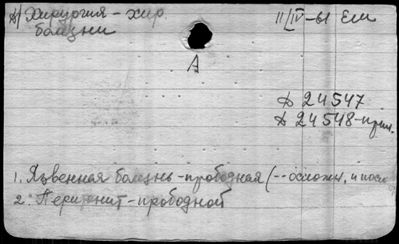 Хирургия - хир. 11/IV-61 Еш
болезни
А
24547
24548-прил.
1. Язвенная болезнь-прободная (-- осложн. и посл
2. Перитонит-прободной